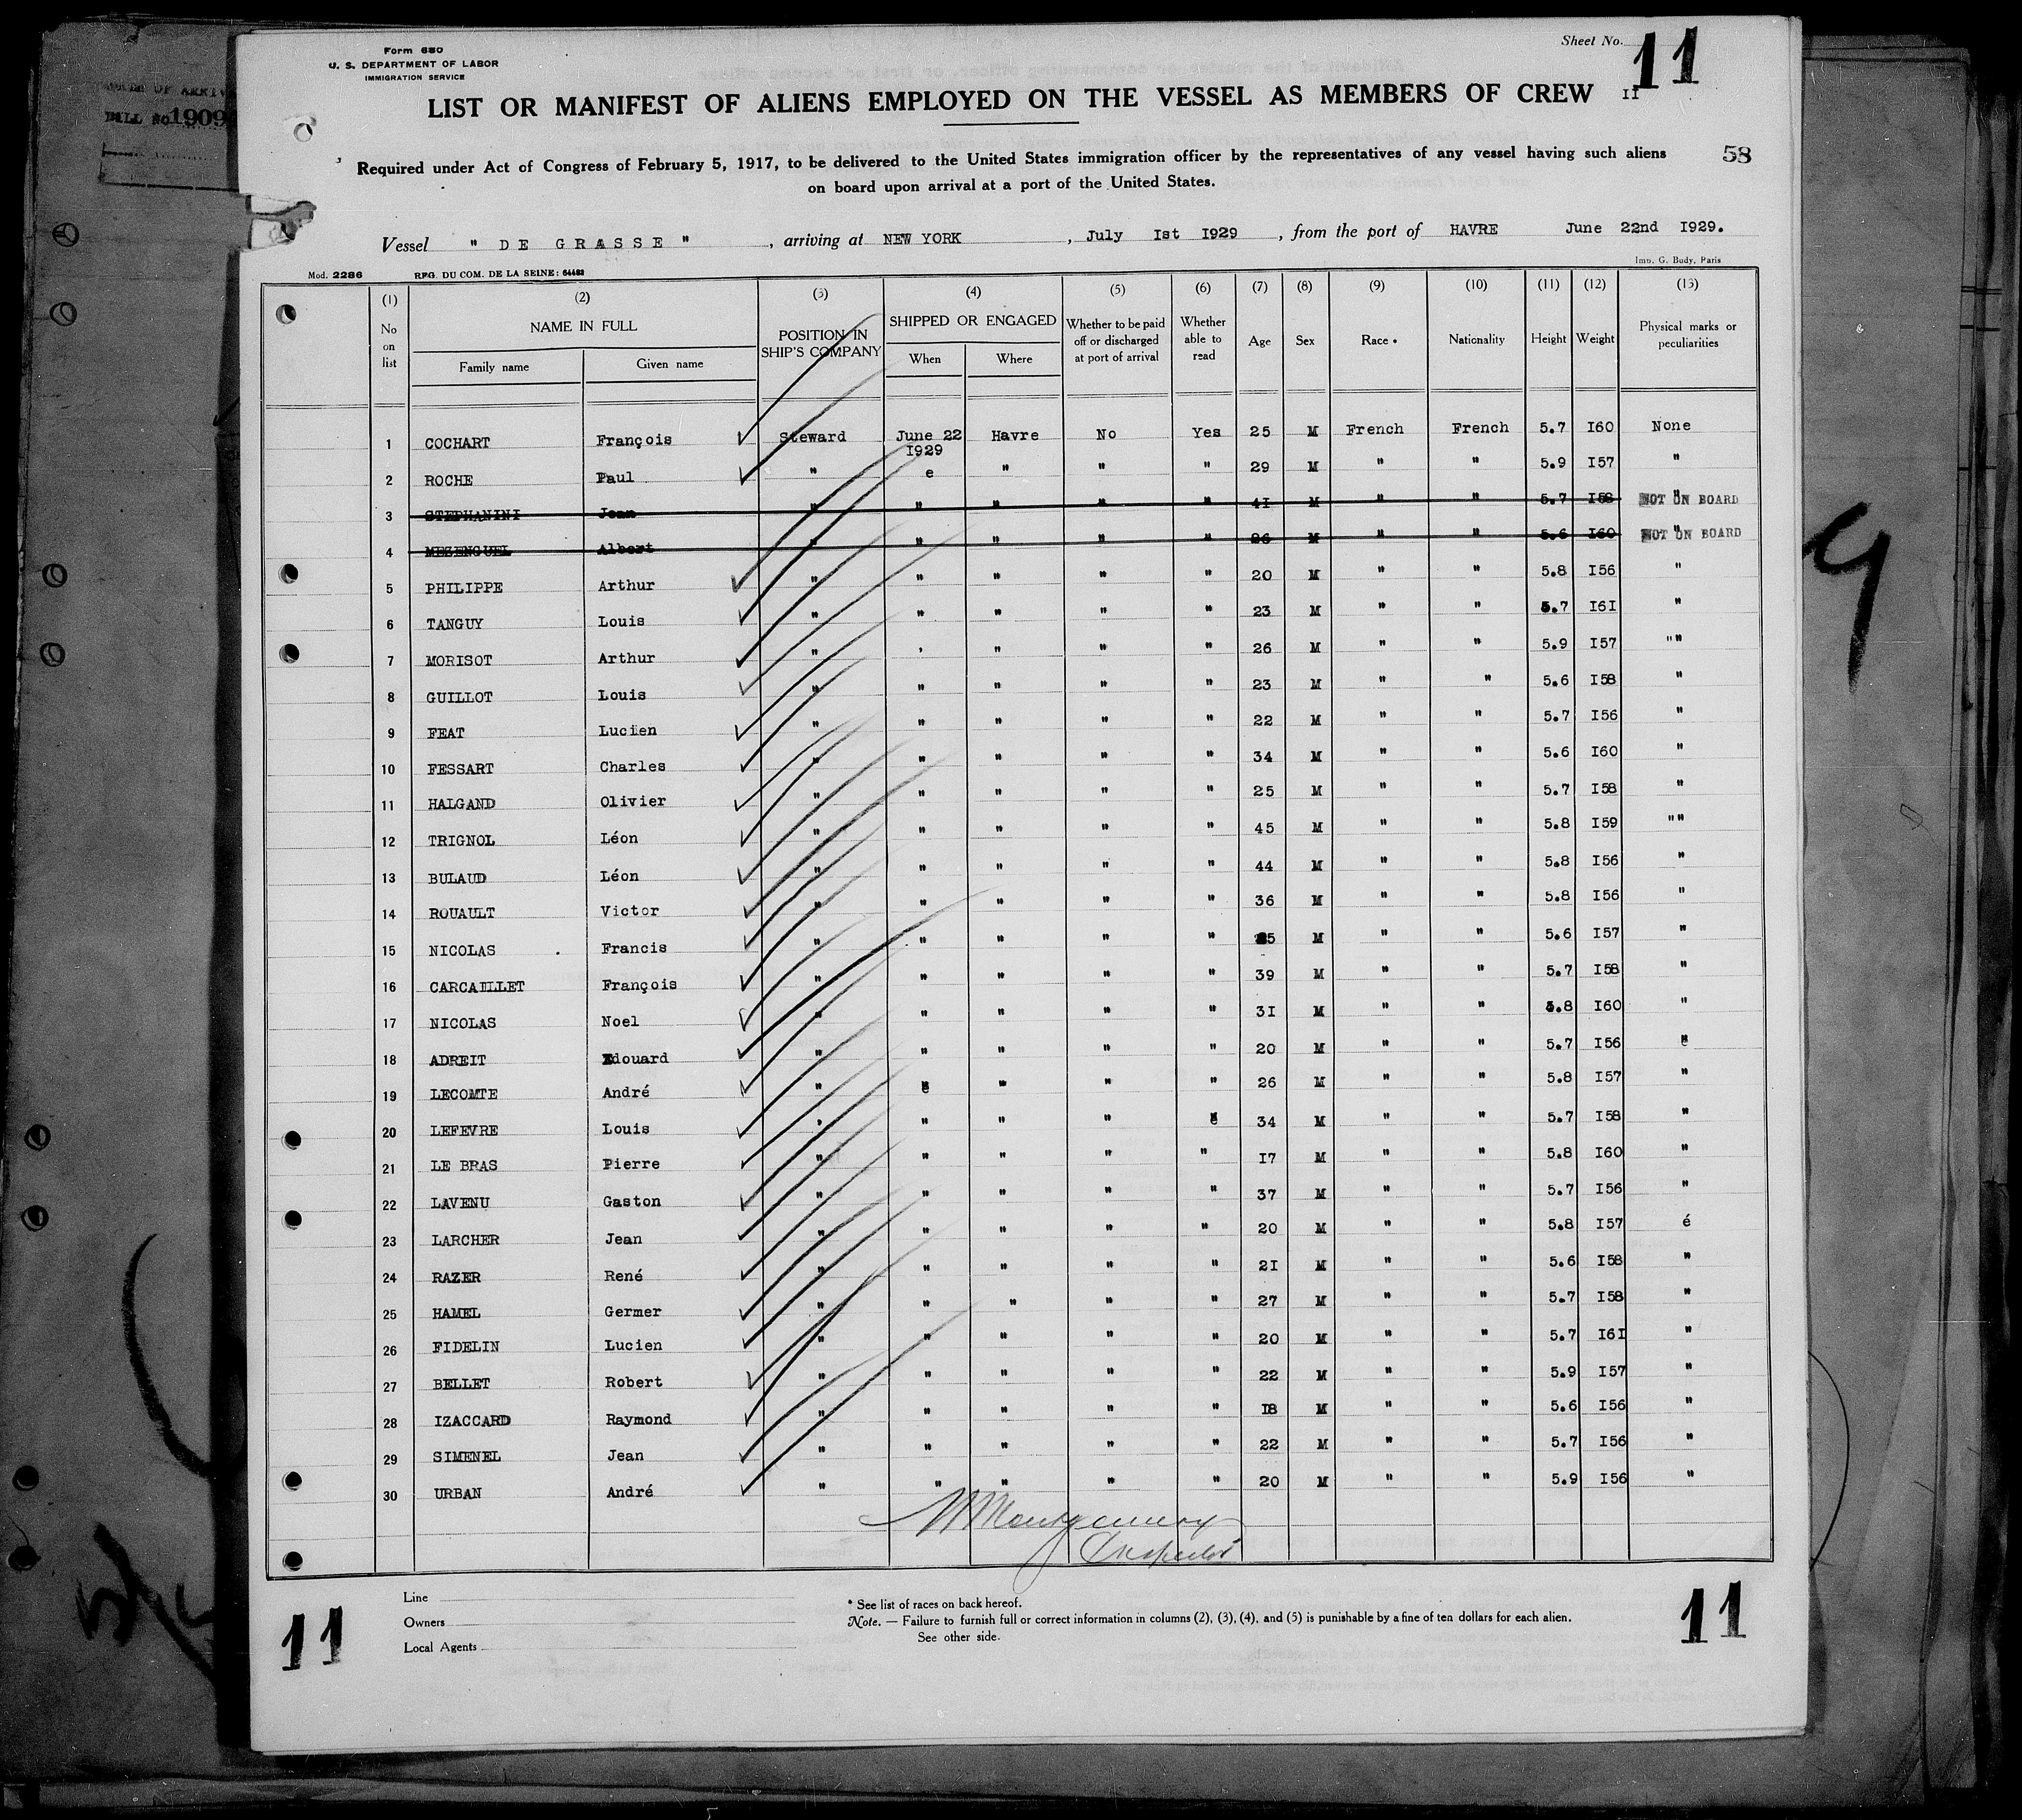 Form 680
U. S. DEPARTMENT OF LABOR
IMMIGRATION SERVICE
Sheet No. 11
LIST OR MANIFEST OF ALIENS EMPLOYED ON THE VESSEL AS MEMBERS OF CREW II
BILL No 1909
Required under Act of Congress of February 5, 1917, to be delivered to the United States immigration officer by the representatives of any vessel having such aliens 58
on board upon arrival at a port of the United States.
Vessel " DE GRASSE " , arriving at NEW YORK , July Ist I929 , from the port of HAVRE June 22nd I929.
Mod. 2286 REG. DU COM. DE LA SEINE: 64482 Imp. G. Budy, Paris
(1) (2) (3) (4) (5) (6) (7) (8) (9) (10) (11) (12) (13)
No on list NAME IN FULL POSITION IN SHIP'S COMPANY SHIPPED OR ENGAGED Whether to be paid off or discharged at port of arrival Whether able to read Age Sex Race * Nationality Height Weight Physical marks or peculiarities
Family name Given name When Where
1 COCHART François Steward June 22 I929 Havre No Yes 25 M French French 5.7 I60 None
2 ROCHE Paul " e " " " 29 M " " 5.9 I57 "
3 STEPHANINI Jean " " " " " 4I M " " 5.7 I58 " NOT ON BOARD
4 MEZENGUEL Albert " " " " " 26 M " " 5.6 I60 " NOT ON BOARD
5 PHILIPPE Arthur " " " " " 20 M " " 5.8 I56 "
6 TANGUY Louis " " " " " 23 M " " 5.7 I6I "
7 MORISOT Arthur " ' " " " 26 M " " 5.9 I57 ""
8 GUILLOT Louis " " " " " 23 M " " 5.6 I58 "
9 FEAT Lucien " " " " " 22 M " " 5.7 I56 "
10 FESSART Charles " " " " " 34 M " " 5.6 I60 "
11 HALGAND Olivier " " " " " 25 M " " 5.7 I58 "
12 TRIGNOL Léon " " " " " 45 M " " 5.8 I59 ""
13 BULAUD Léon " " " " " 44 M " " 5.8 I56 "
14 ROUAULT Victor " " " " " 36 M " " 5.8 I56 "
15 NICOLAS Francis " " " " " M " " 5.6 I57 "
16 CARCAILLET François " " " " " 39 M " " 5.7 I58 "
17 NICOLAS Noel " " " " " 3I M " " 5.8 I60 "
18 ADREIT Edouard " " " " " 20 M " " 5.7 I56 "
19 LECOMTE André " " " " " 26 M " " 5.8 I57 "
20 LEFEVRE Louis ' " " " " 34 M " " 5.7 I58 "
21 LE BRAS Pierre " " " " " I7 M " " 5.8 I60 "
22 LAVENU Gaston " " " " " 37 M " " 5.7 I56 "
23 LARCHER Jean " " " " " 20 M " " 5.8 I57 é
24 RAZER René " " " " " 2I M " " 5.6 I58 "
25 HAMEL Germer " " " " " 27 M " " 5.7 I58 "
26 FIDELIN Lucien " " " " " 20 M " " 5.7 I6I "
27 BELLET Robert " " " " " 22 M " " 5.9 I57 "
28 IZACCARD Raymond " " " " " I8 M " " 5.6 I56 "
29 SIMENEL Jean " " " " " 22 M " " 5.7 I56 "
30 URBAN André " " " " " 20 M " " 5.9 I56 "
Montgomery
Inspector
Line
Owners
Local Agents
* See list of races on back hereof.
Note. — Failure to furnish full or correct information in columns (2), (3), (4), and (5) is punishable by a fine of ten dollars for each alien.
See other side.
11 11